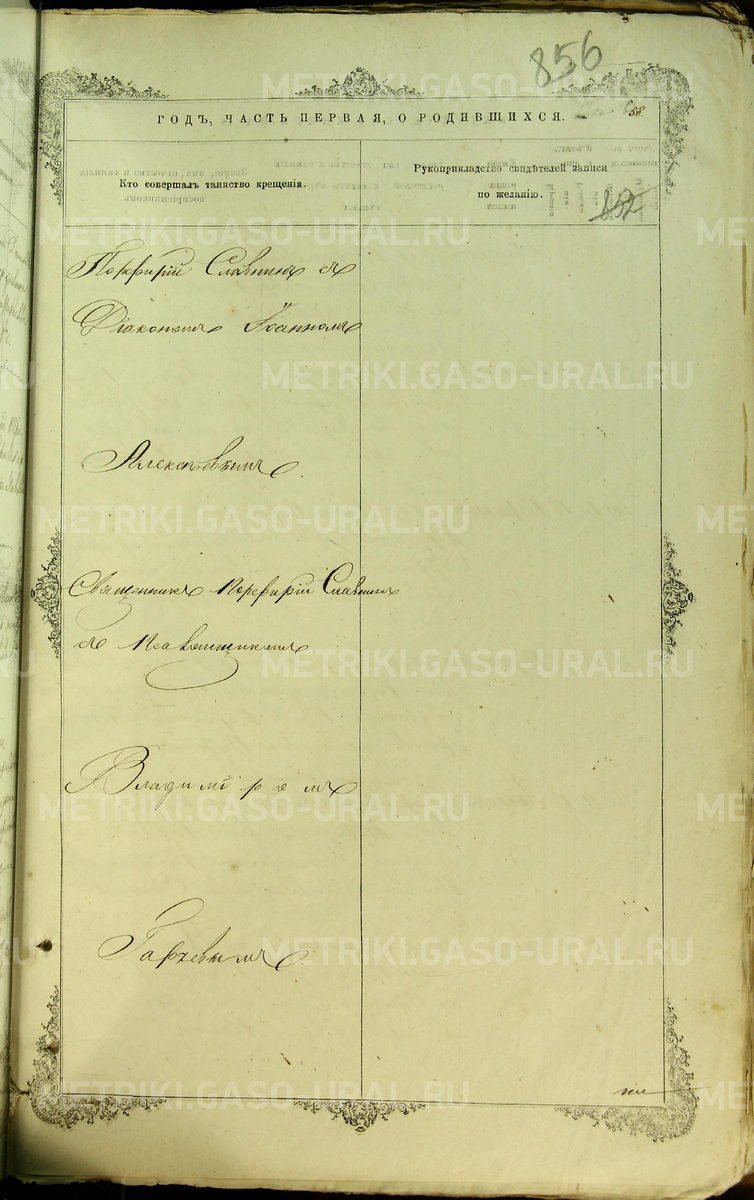 856
ГОДЪ, ЧАСТЬ ПЕРВАЯ, О РОДИВШИХСЯ.
58.
Кто совершалъ таинство крещенія.
Рукоприкладство свидѣтелей записи
по желанію.
852
Порфирій Славнинъ съ
Діакономъ Іоанномъ
Алексѣевымъ.
Священникъ Порфирій Славнинъ
съ
Владиміромъ
METRIKI.GASO-URAL.RU